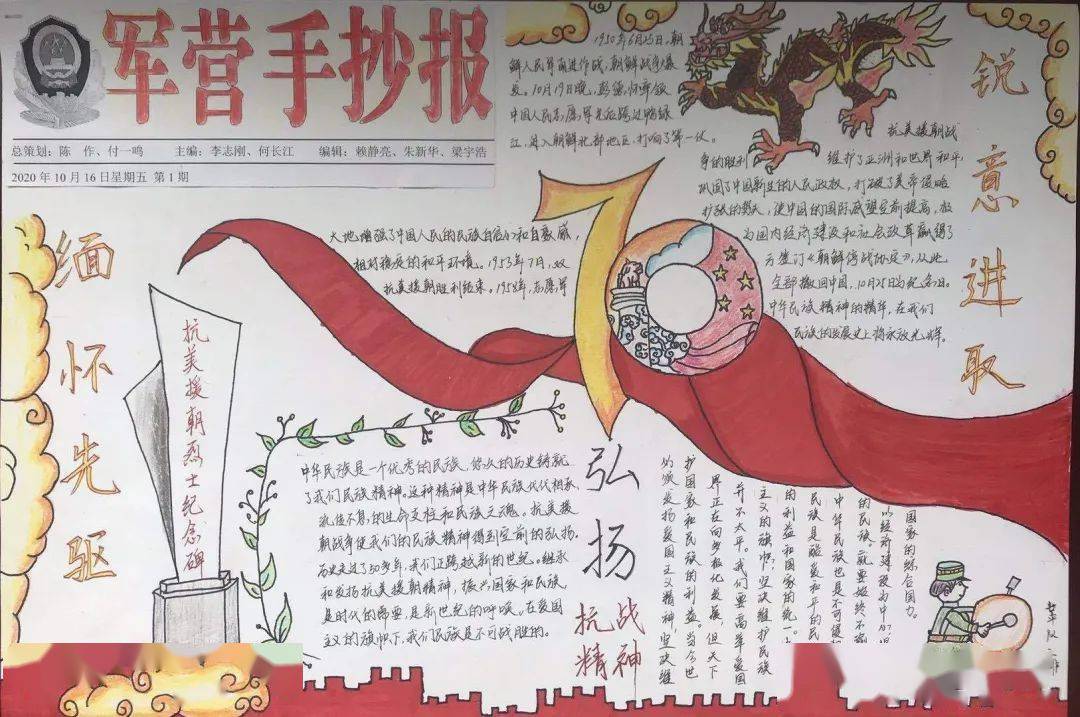 军营手抄报
总策划：陈 作、付一鸣 主编：李志刚、何长江 编辑：赖静亮、朱新华、梁宇浩
2020年10月16日星期五 第1期
缅怀先驱
抗美援朝烈士纪念碑
1950年6月25日，朝
鲜人民军南进作战，朝鲜战争爆
发。10月19日晚，彭德怀率领
中国人民志愿军先后跨过鸭绿
江，进入朝鲜北部地区，打响了第一仗。
锐意进取
抗美援朝战
争的胜利 维护了亚洲和世界和平，
巩固了中国新生的人民政权，打破了美帝侵略
扩张的势头，使中国的国际威望空前提高，极
大地增强了中国人民的民族自信心和自豪感，
为国内经济建设和社会改革赢得了
相对稳定的和平环境。1953年7月，双
方签订《朝鲜停战协定》，从此
抗美援朝胜利结束。1958年，志愿军
全部撤回中国，10月25日为纪念日。
中华民族精神的精华，在我们
民族的发展史上将永放光辉。
70
中华民族是一个优秀的民族，悠久的历史铸就
了我们民族精神。这种精神是中华民族代代相承、
永恒不息，的生命支柱和民族之魂。抗美援
朝战争使我们的民族精神得到空前的弘扬。
历史走过了50多年，我们正跨越新的世纪。继承
和发扬抗美援朝精神，振兴国家和民族
是时代的需要，是新世纪的呼唤。在爱国
主义的旗帜下，我们民族是不可战胜的。
弘扬
抗战
精神
国家的综合国力。
以经济建设为中心
的民族，就要始终不
中华民族也是不可
民族是酷爱和平的民
的利益和国家的统一。
主义的旗帜，坚决维护民族
并不太平。我们要高举爱国
界正在向多极化发展，但天下
护国家和民族的利益。当今世
的激发爱国主义精神，坚决维